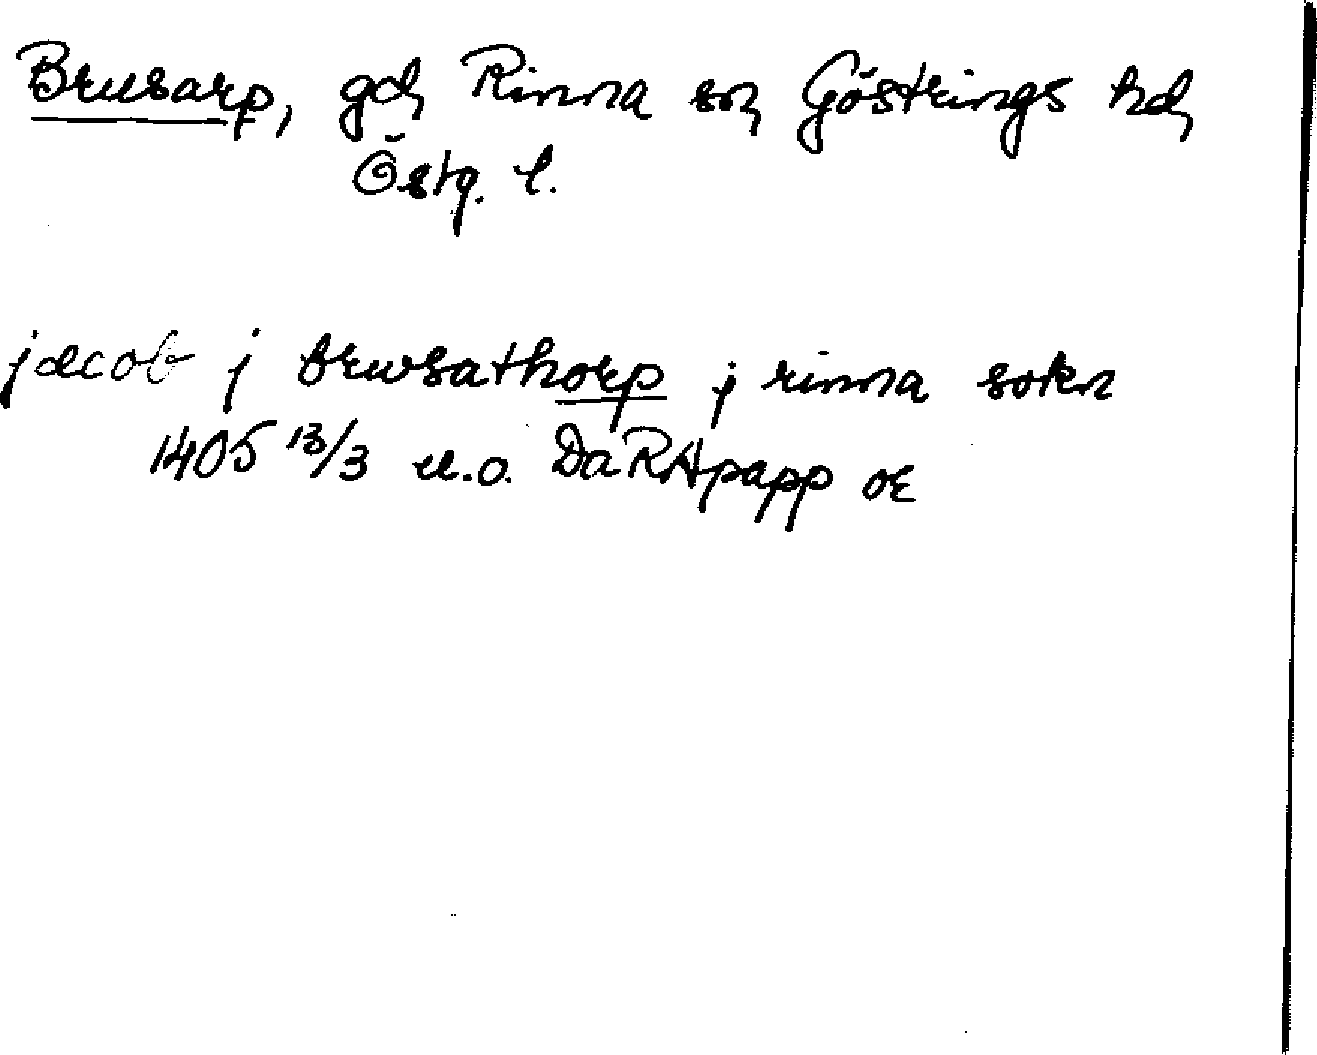 Brusarp, gd, Rinna sn, Göstrings hd,
Östg. l.
jacob j brwsathorp j rinna sokn
1405 13/3 u.o. Da RApapp or